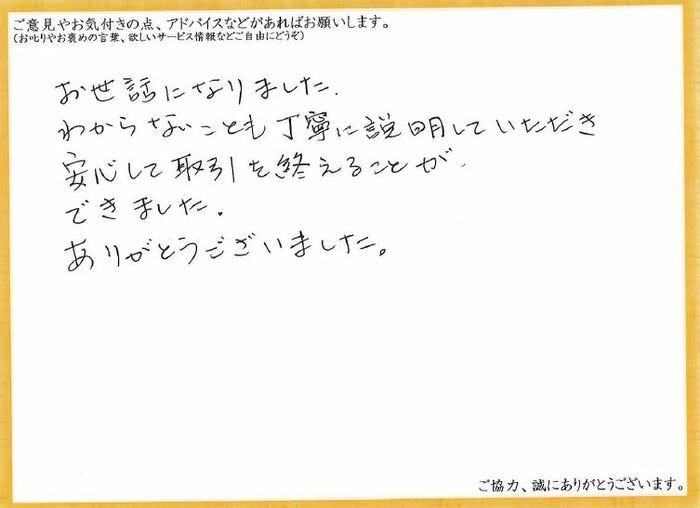 ご意見やお気付きの点、アドバイスなどがあればお願いします。
(お叱りやお褒めの言葉、欲しいサービス情報などご自由にどうぞ)
お世話になりました.
わからないことも丁寧に説明していただき
安心して取引を終えることが.
できました.
ありがとうございました。
ご協力、誠にありがとうございます。